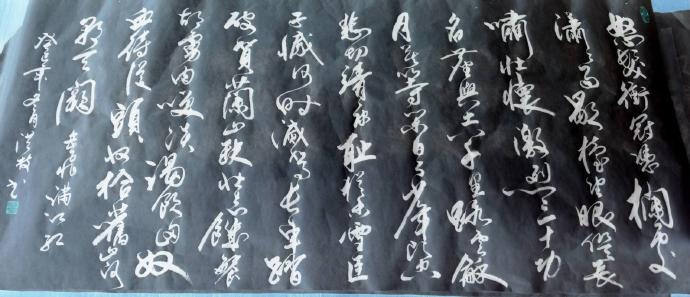 怒髮衝冠憑欄處
瀟瀟雨歇抬望眼仰天長
嘯壯懷激烈三十功
名塵與土八千里路雲和
月莫等閒白了少年頭空
悲切靖康恥猶未雪臣
子憾何时滅駕長車踏
破賀蘭山缺壯志飢餐
胡虜肉笑談渴飲匈奴
血待從頭收拾舊山河
朝天闕 岳飛滿江紅
癸巳年 月 书